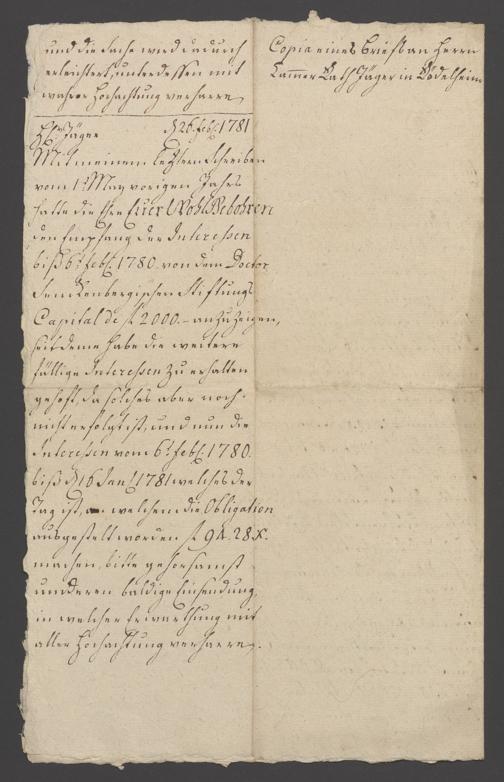 und die Sache wird dadurch
erleichtert, unterdessen mit
wahrer Hochachtung verharre
Copia eines Briefs an Herrn
Cammer Rath Jäger in Rödelheim
H. Jäger d 26. feb. 1781
Mit meinem letztern Schreiben
vom 1t May vorigen Jahrs
hatte die Ehre Euer WohlGebohren
den Empfang der Interessen
biß 6t feb. 1780 von dem Doctor
Senckenbergischen Stiftungs
Capital de f 2000.- anzuzeigen,
seit deme habe die weitere
fällige Interessen zu erhalten
gehoft, da solches aber noch
nicht erfolgt ist, und nun die
Interessen vom 6t feb. 1780.
biß d 16 Jan 1781 welches der
Tag ist, an welchem die Obligation
ausgestelt worden f 94. 28 x.
machen, bitte gehorsamst
um deren baldige Einsendung,
in welcher Erwarthung mit
aller Hochachtung verharre.